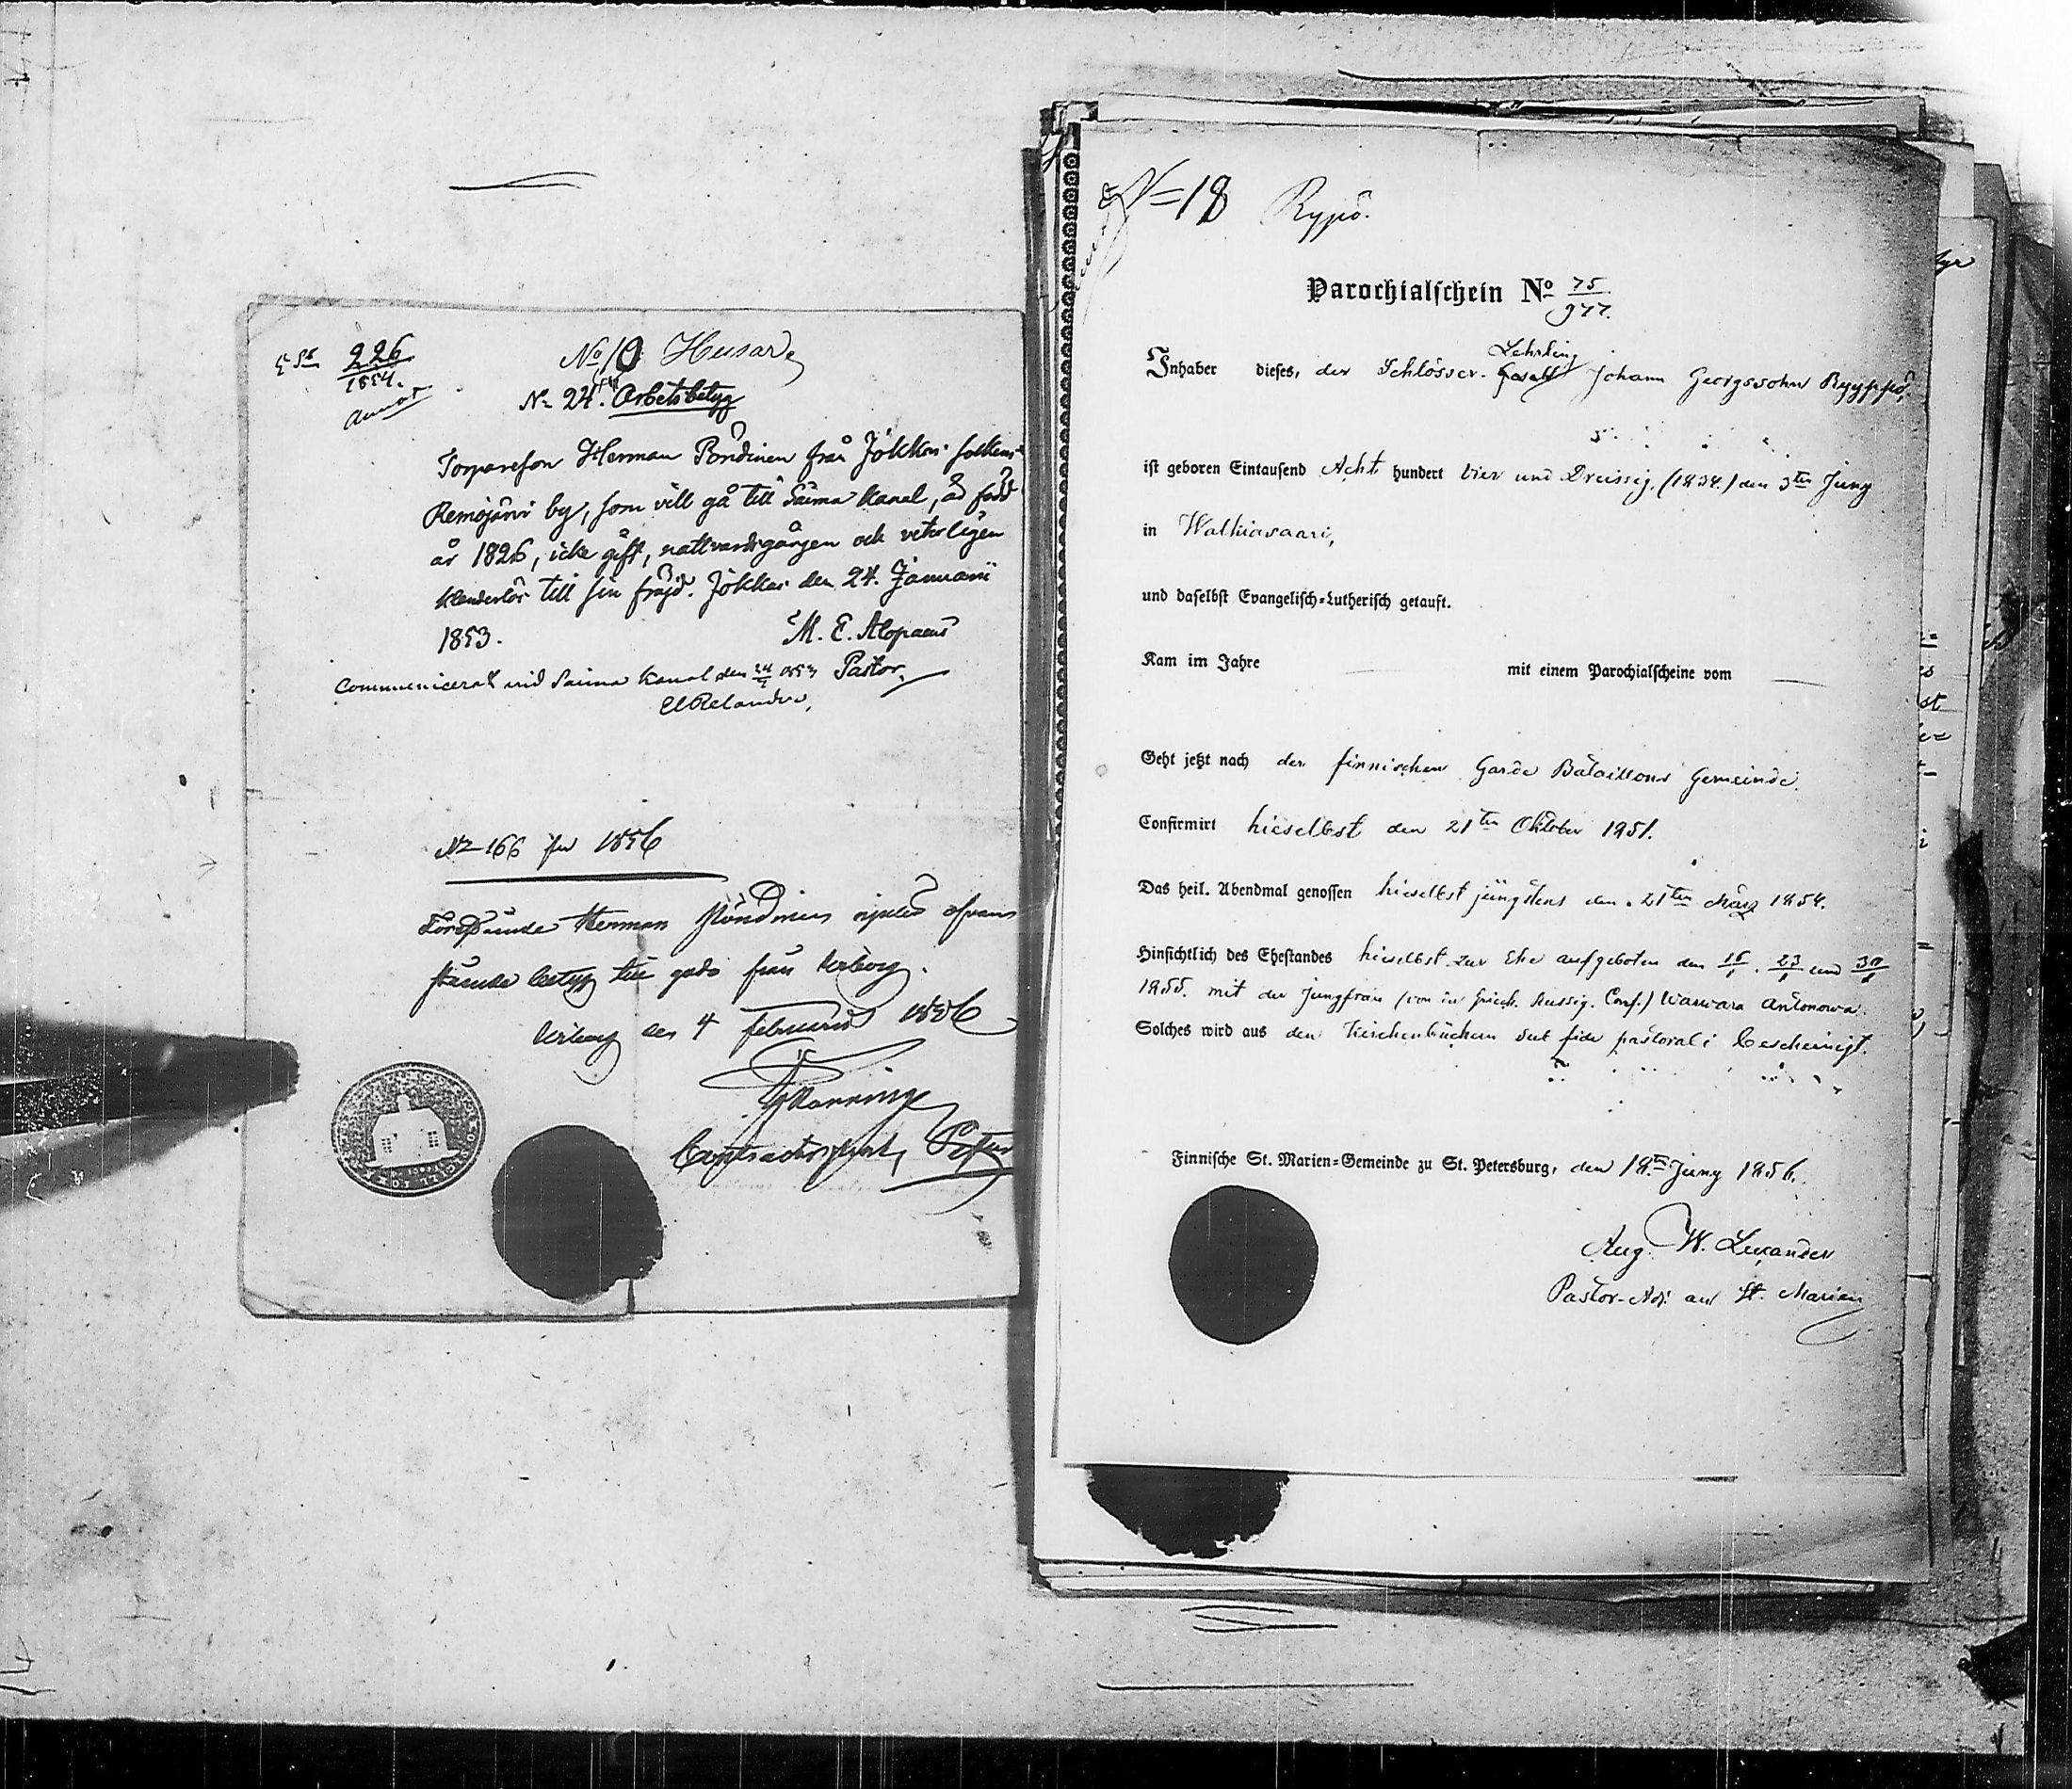 226
1854.
No 10 Husar
No 24. Arbetsbetyg
Torpareson Herman Pöndinen från Jokkas sokken
Remojärvi by, som vill gå till Saima Kanal, är född
år 1826, icke gift, nattvardsgången och veterligen
klanderlös till sin fräjd. Jokkas den 24. Januarii
1853.
M. E. Alopaeus
Pastor.
Communicerat vid Saima Kanal den
No 166 för 1856
Herman Pöndinen
betyg till godo från Wiborg.
Wiborg den 4 Februarii 1856
Contractsprost,
No 18 Rypö.
Parochialschein No 75/977.
Lehrling
Inhaber dieses, der Schlosser- Gesell Johann Georgssohn Ryyppö,
ist geboren Eintausend Acht hundert Vier und Dreissig, (1834.) den 3ten Juny
in Walkiasaari,
und daselbst Evangelisch-Lutherisch getauft.
Kam im Jahre — mit einem Parochialscheine vom —
Geht jetzt nach der finnischen Garde Bataillons Gemeinde.
Confirmirt hieselbst den 21ten Oktober 1851.
Das heil. Abendmal genossen hieselbst jüngstens den 21ten März 1854.
Hinsichtlich des Ehestandes hieselbst zur Ehe aufgeboten den 16/1. 23/1 und 30/1
1855. mit der Jungfrau (von der Griech. Russig. Conf.) Warwara Antonowa.
Solches wird aus den Kirchenbüchern sub fide pastorali bescheinigt.
Finnische St. Marien-Gemeinde zu St. Petersburg, den 18ten Juny 1856.
Aug. W. Lucander
Pastor-Adj. an St. Marien